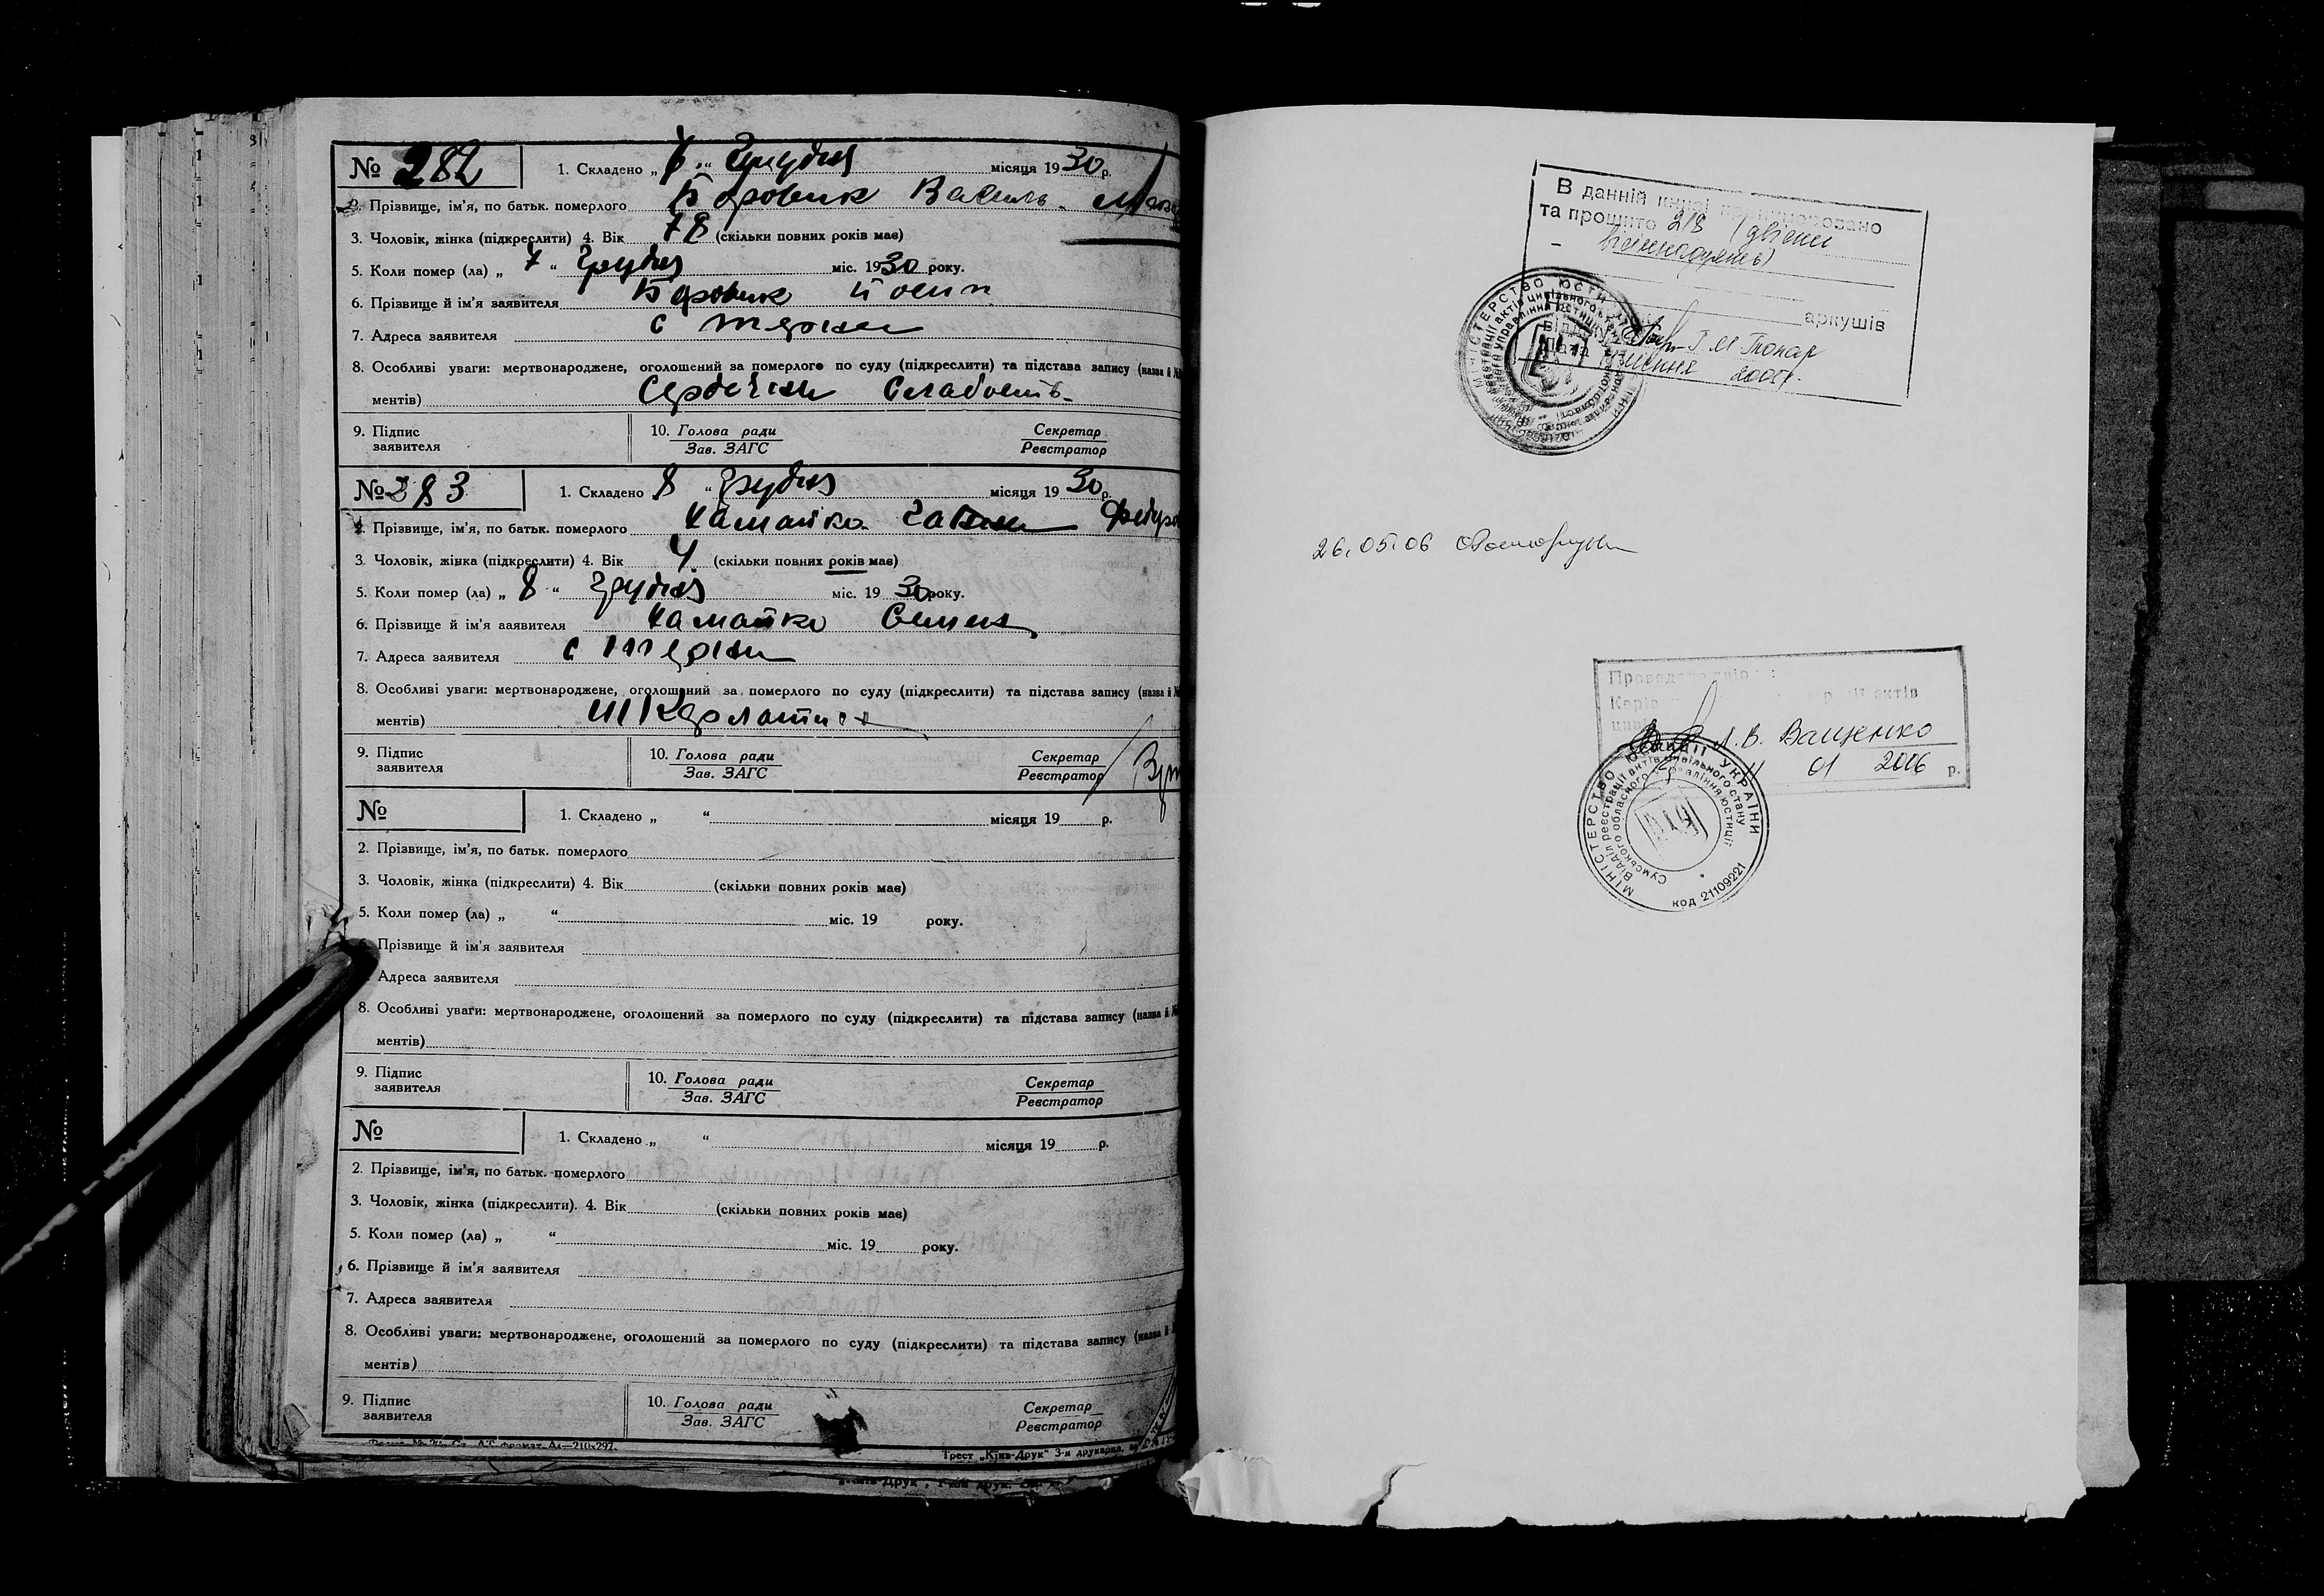 № 282 1. Складено „ " Грудня місяця 1930 р.
2. Прізвище, ім'я, по батьк. померлого Боровик Василь
3. Чоловік, жінка (підкреслити) 4. Вік 78 (скільки повних років має)
5. Коли помер (ла) „ 7 " Грудня міс. 1930 року.
6. Прізвище й ім'я заявителя Боровик Йосип
7. Адреса заявителя с Терни
8. Особливі уваги: мертвонароджене, оголошений за померлого по суду (підкреслити) та підстава запису (назва й №
ментів) Сердечна Слабость
9. Підпис заявителя 10. Голова ради Зав. ЗАГС Секретар Реєстратор
№ 283 1. Складено 8 " Грудня місяця 1930 р.
2. Прізвище, ім'я, по батьк. померлого Федор
3. Чоловік, жінка (підкреслити) 4. Вік 4 (скільки повних років має)
5. Коли помер (ла) „ 8 " Грудня міс. 1930 року.
6. Прізвище й ім'я заявителя Семен
7. Адреса заявителя с Терни
8. Особливі уваги: мертвонароджене, оголошений за померлого по суду (підкреслити) та підстава запису (назва й №
ментів) Шкарлатина
9. Підпис заявителя 10. Голова ради Зав. ЗАГС Секретар Реєстратор
№ 1. Складено „ " місяця 19 р.
2. Прізвище, ім'я, по батьк. померлого
3. Чоловік, жінка (підкреслити) 4. Вік (скільки повних років має)
5. Коли помер (ла) „ " міс. 19 року.
Прізвище й ім'я заявителя
Адреса заявителя
8. Особливі уваги: мертвонароджене, оголошений за померлого по суду (підкреслити) та підстава запису (назва й №
ментів)
9. Підпис заявителя 10. Голова ради Зав. ЗАГС Секретар Реєстратор
№ 1. Складено „ " місяця 19 р.
2. Прізвище, ім'я, по батьк. померлого
3. Чоловік, жінка (підкреслити). 4. Вік (скільки повних років має)
5. Коли помер (ла) „ " міс. 19 року.
6. Прізвище й ім'я заявителя
7. Адреса заявителя
8. Особливі уваги: мертвонароджене, оголошений за померлого по суду (підкреслити) та підстава запису (назва й
ментів)
9. Підпис заявителя 10. Голова ради Зав. ЗАГС Секретар Реєстратор
Формат А4—210x297.
Трест „Київ-Друк" 3-я друкарня,
В данній книзі пронумеровано
та прошито 218 (двісті
вісімнадцять)
аркушів
Г М Токар
2005р.
26.05.06
Л.В. Ващенко
11 01 2006 р.
МІНІСТЕРСТВО ЮСТИЦІЇ УКРАЇНИ
Відділ реєстрації актів цивільного стану
Сумського обласного управління юстиції
код 21109221